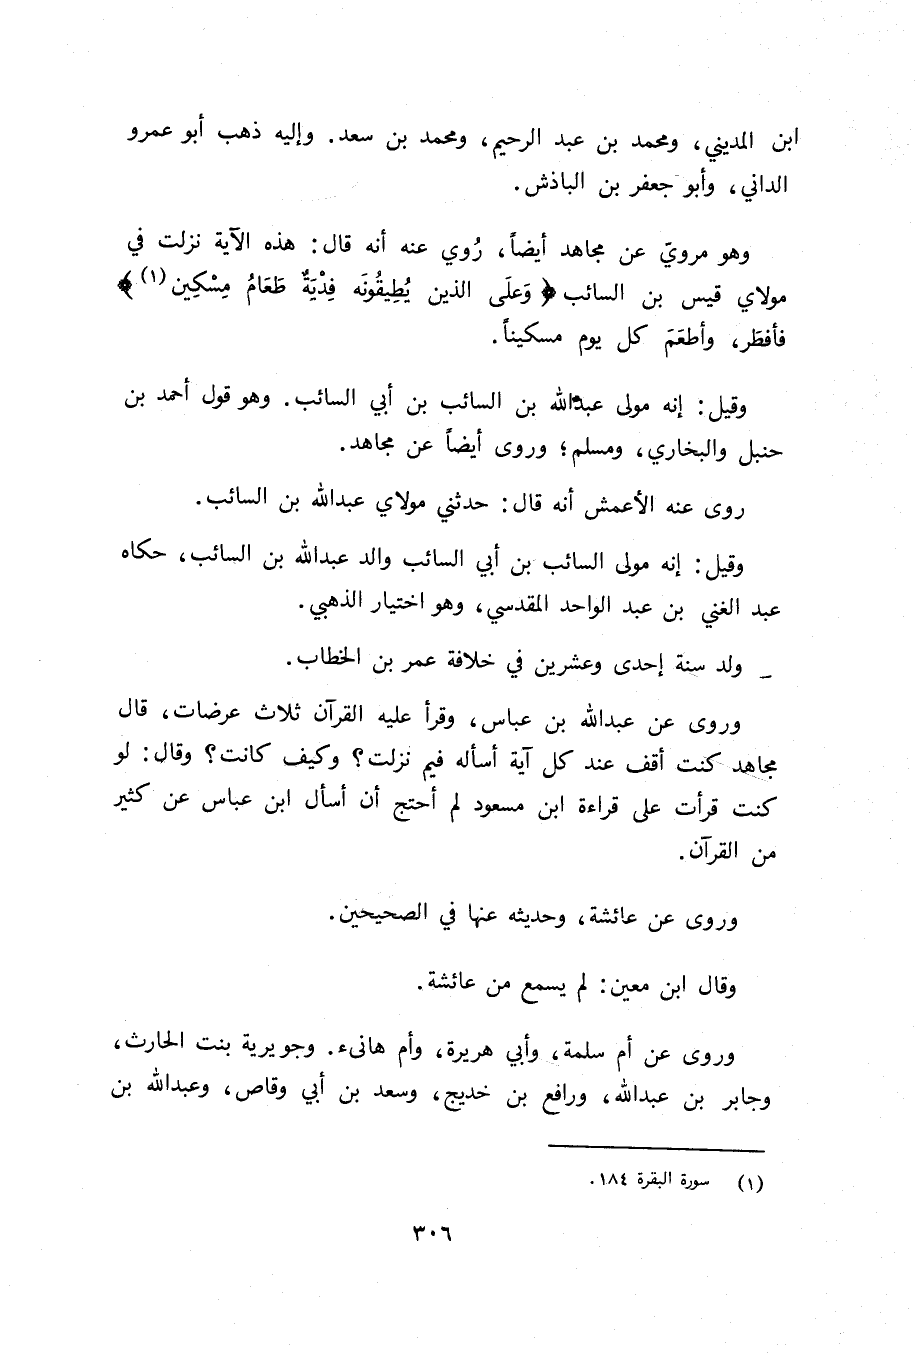 ابن المديني، ومحمد بن عبد الرحيم، ومحمد بن سعد. وإليه ذهب أبو عمرو
الداني، وأبو جعفر بن الباذش.
وهو مرويّ عن مجاهد أيضاً، رُوي عنه أنه قال: هذه الآية نزلت في
مولاي قيس بن السائب ﴿وَعلَى الذين يُطِيقُونَه فِدْيَةٌ طَعَامُ مِسْكِين(١)﴾
فأفطَر، وأطعَمَ كل يوم مسكيناً.
وقيل: إنه مولى عبدالله بن السائب بن أبي السائب. وهو قول أحمد بن
حنبل والبخاري، ومسلم؛ وروى أيضاً عن مجاهد.
روى عنه الأعمش أنه قال: حدثني مولاي عبدالله بن السائب.
وقيل: إنه مولى السائب بن أبي السائب والد عبدالله بن السائب، حكاه
عبد الغني بن عبد الواحد المقدسي، وهو اختيار الذهبي.
_ ولد سنة إحدى وعشرين في خلافة عمر بن الخطاب.
وروى عن عبدالله بن عباس، وقرأ عليه القرآن ثلاث عرضات، قال
مجاهد كنت أقف عند كل آية أسأله فيم نزلت؟ وكيف كانت؟ وقال: لو
كنت قرأت على قراءة ابن مسعود لم أحتج أن أسأل ابن عباس عن كثير
من القرآن.
وروى عن عائشة، وحديثه عنها في الصحيحين.
وقال ابن معين: لم يسمع من عائشة.
وروى عن أم سلمة، وأبي هريرة، وأم هانىء. وجويرية بنت الحارث،
وجابر بن عبدالله، ورافع بن خديج، وسعد بن أبي وقاص، وعبدالله بن
(١) سورة البقرة ١٨٤.
٣٠٦